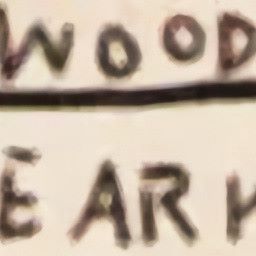 WOOD
EAR